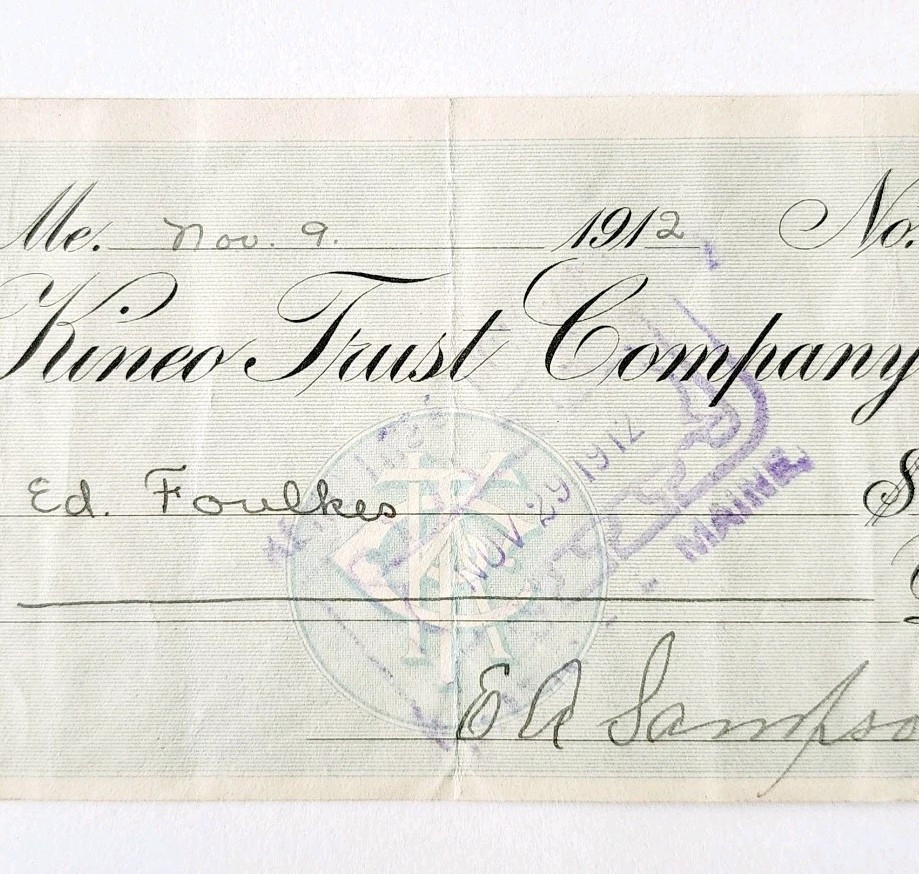 Me. Nov. 9. 1912 No.
Kineo Trust Company
Ed. Foulkes $
NOV 29 1912
MAINE.
E A Sampso